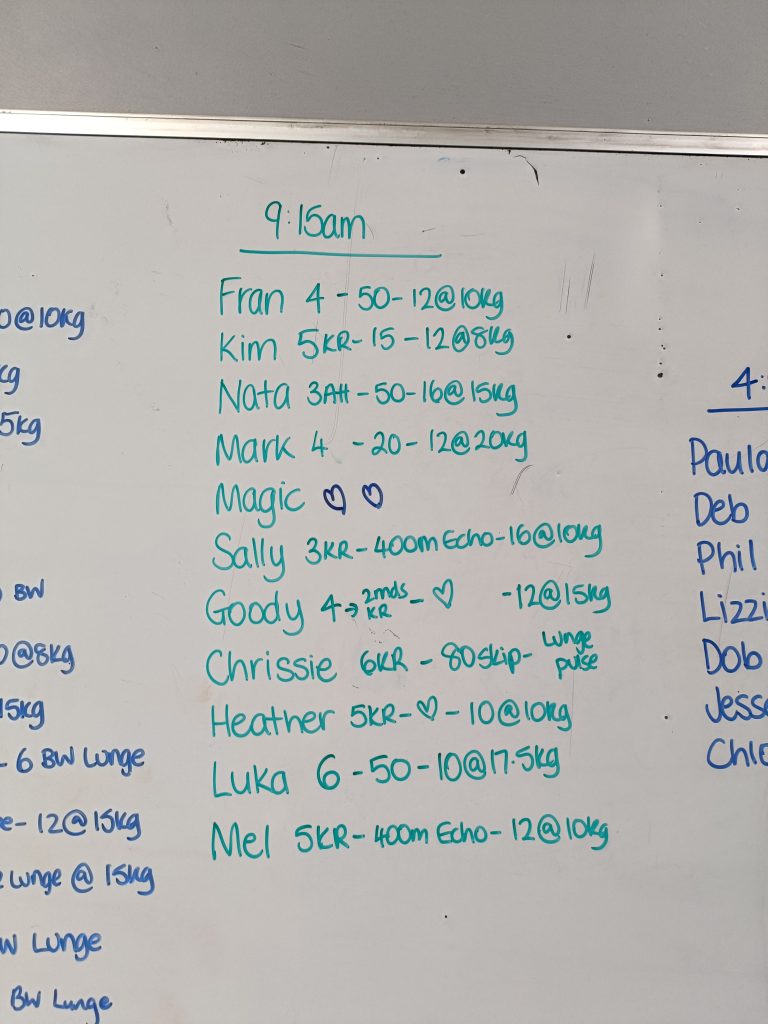 9:15am
Fran 4 - 50 - 12@10kg
Kim 5KR - 15 - 12@8kg
Nata 3AH - 50 - 16@15kg
Mark 4 - 20 - 12@20kg
Magic ♡ ♡
Sally 3KR - 400m Echo - 16@10kg
Goody 4 → 2mds KR - ♡ - 12@15kg
Chrissie 6KR - 80 skip - Lunge pulse
Heather 5KR - ♡ - 10@10kg
Luka 6 - 50 - 10@17.5kg
Mel 5KR - 400m Echo - 12@10kg
0@10kg
kg
5kg
BW
0@8kg
15kg
- 6 BW Lunge
e - 12@15kg
e Lunge @ 15kg
W Lunge
BW Lunge
4:
Paulo
Deb
Phil
Lizzi
Dob
Jesse
Chlo